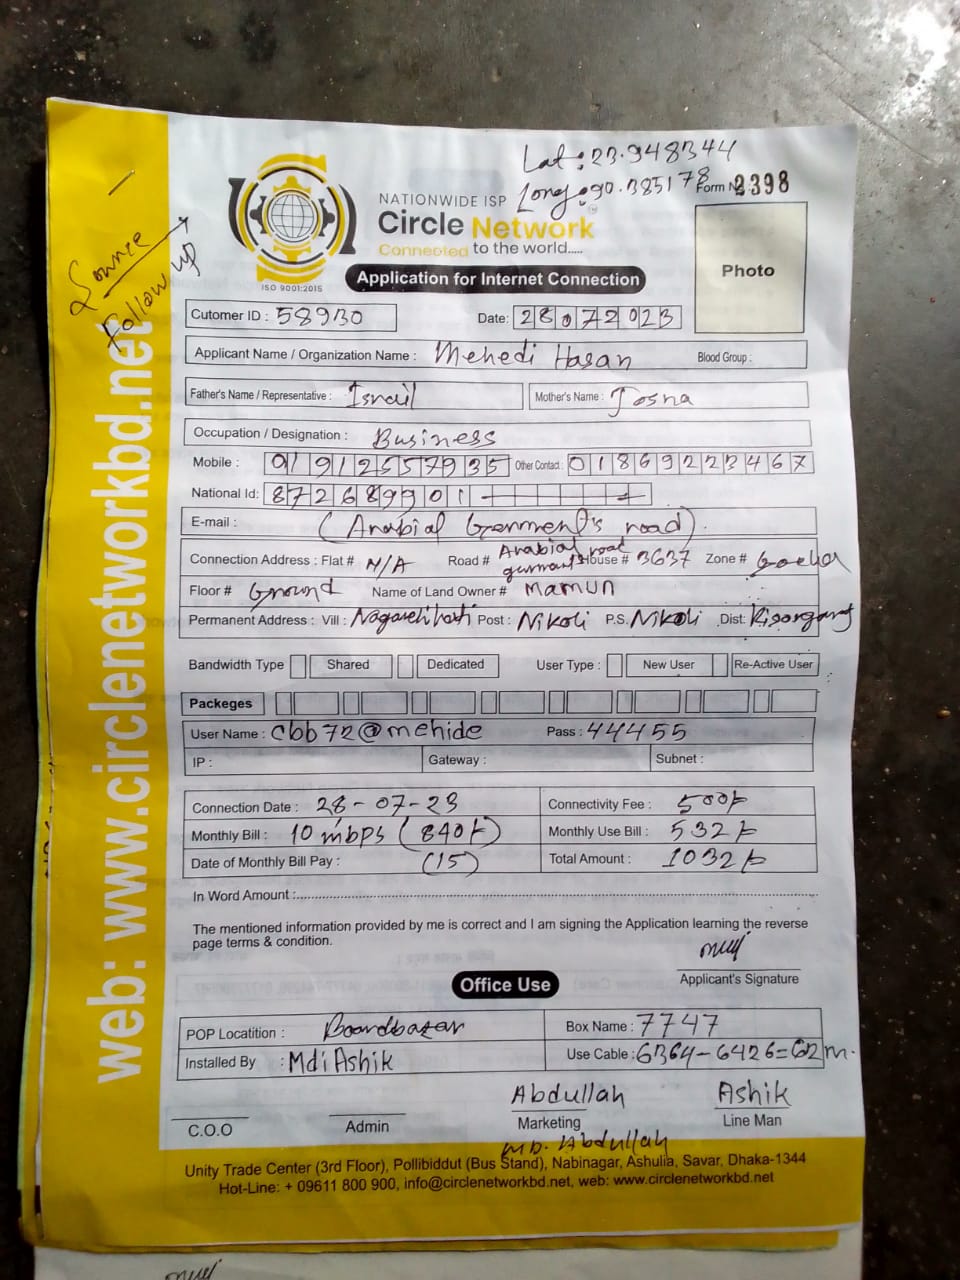 Lat: 23.948344
Long: 90.385178 Form N 2398
NATIONWIDE ISP
Circle Network
Connected to the world.....
ISO 9001:2015
Application for Internet Connection
Photo
Source
Follow up
Cutomer ID : 58930 Date: 28072023
Applicant Name / Organization Name : Mehedi Hasan Blood Group :
Father's Name / Representative : Israil Mother's Name : Josna
Occupation / Designation : Business
Mobile : 01912557935 Other Contact: 01869223467
National Id: 872689901
E-mail : (Arabial Germent's road).
Connection Address : Flat # N/A Road # Arabial road House # 3637 Zone #
Floor # Ground Name of Land Owner # Mamun
Permanent Address : Vill : Post : Nikoli P.S. Nikoli Dist: Kisorganj
Bandwidth Type Shared Dedicated User Type : New User Re-Active User
Packeges
User Name : cbb72@mehide Pass : 44455
IP : Gateway : Subnet :
Connection Date : 28-07-23 Connectivity Fee : 500/-
Monthly Bill : 10 mbps (840/-) Monthly Use Bill : 532/-
Date of Monthly Bill Pay : (15) Total Amount : 1032/-
In Word Amount :
The mentioned information provided by me is correct and I am signing the Application learning the reverse
page terms & condition.
Applicant's Signature
Office Use
POP Locatition : Boardbazar Box Name : 7747
Installed By : Md: Ashik Use Cable : 6364-6426=62m.
Abdullah Ashik
C.O.O Admin Marketing Line Man
MD. Abdullah
Unity Trade Center (3rd Floor), Pollibiddut (Bus Stand), Nabinagar, Ashulia, Savar, Dhaka-1344
Hot-Line: + 09611 800 900, info@circlenetworkbd.net, web: www.circlenetworkbd.net
web: www.circlenetworkbd.net